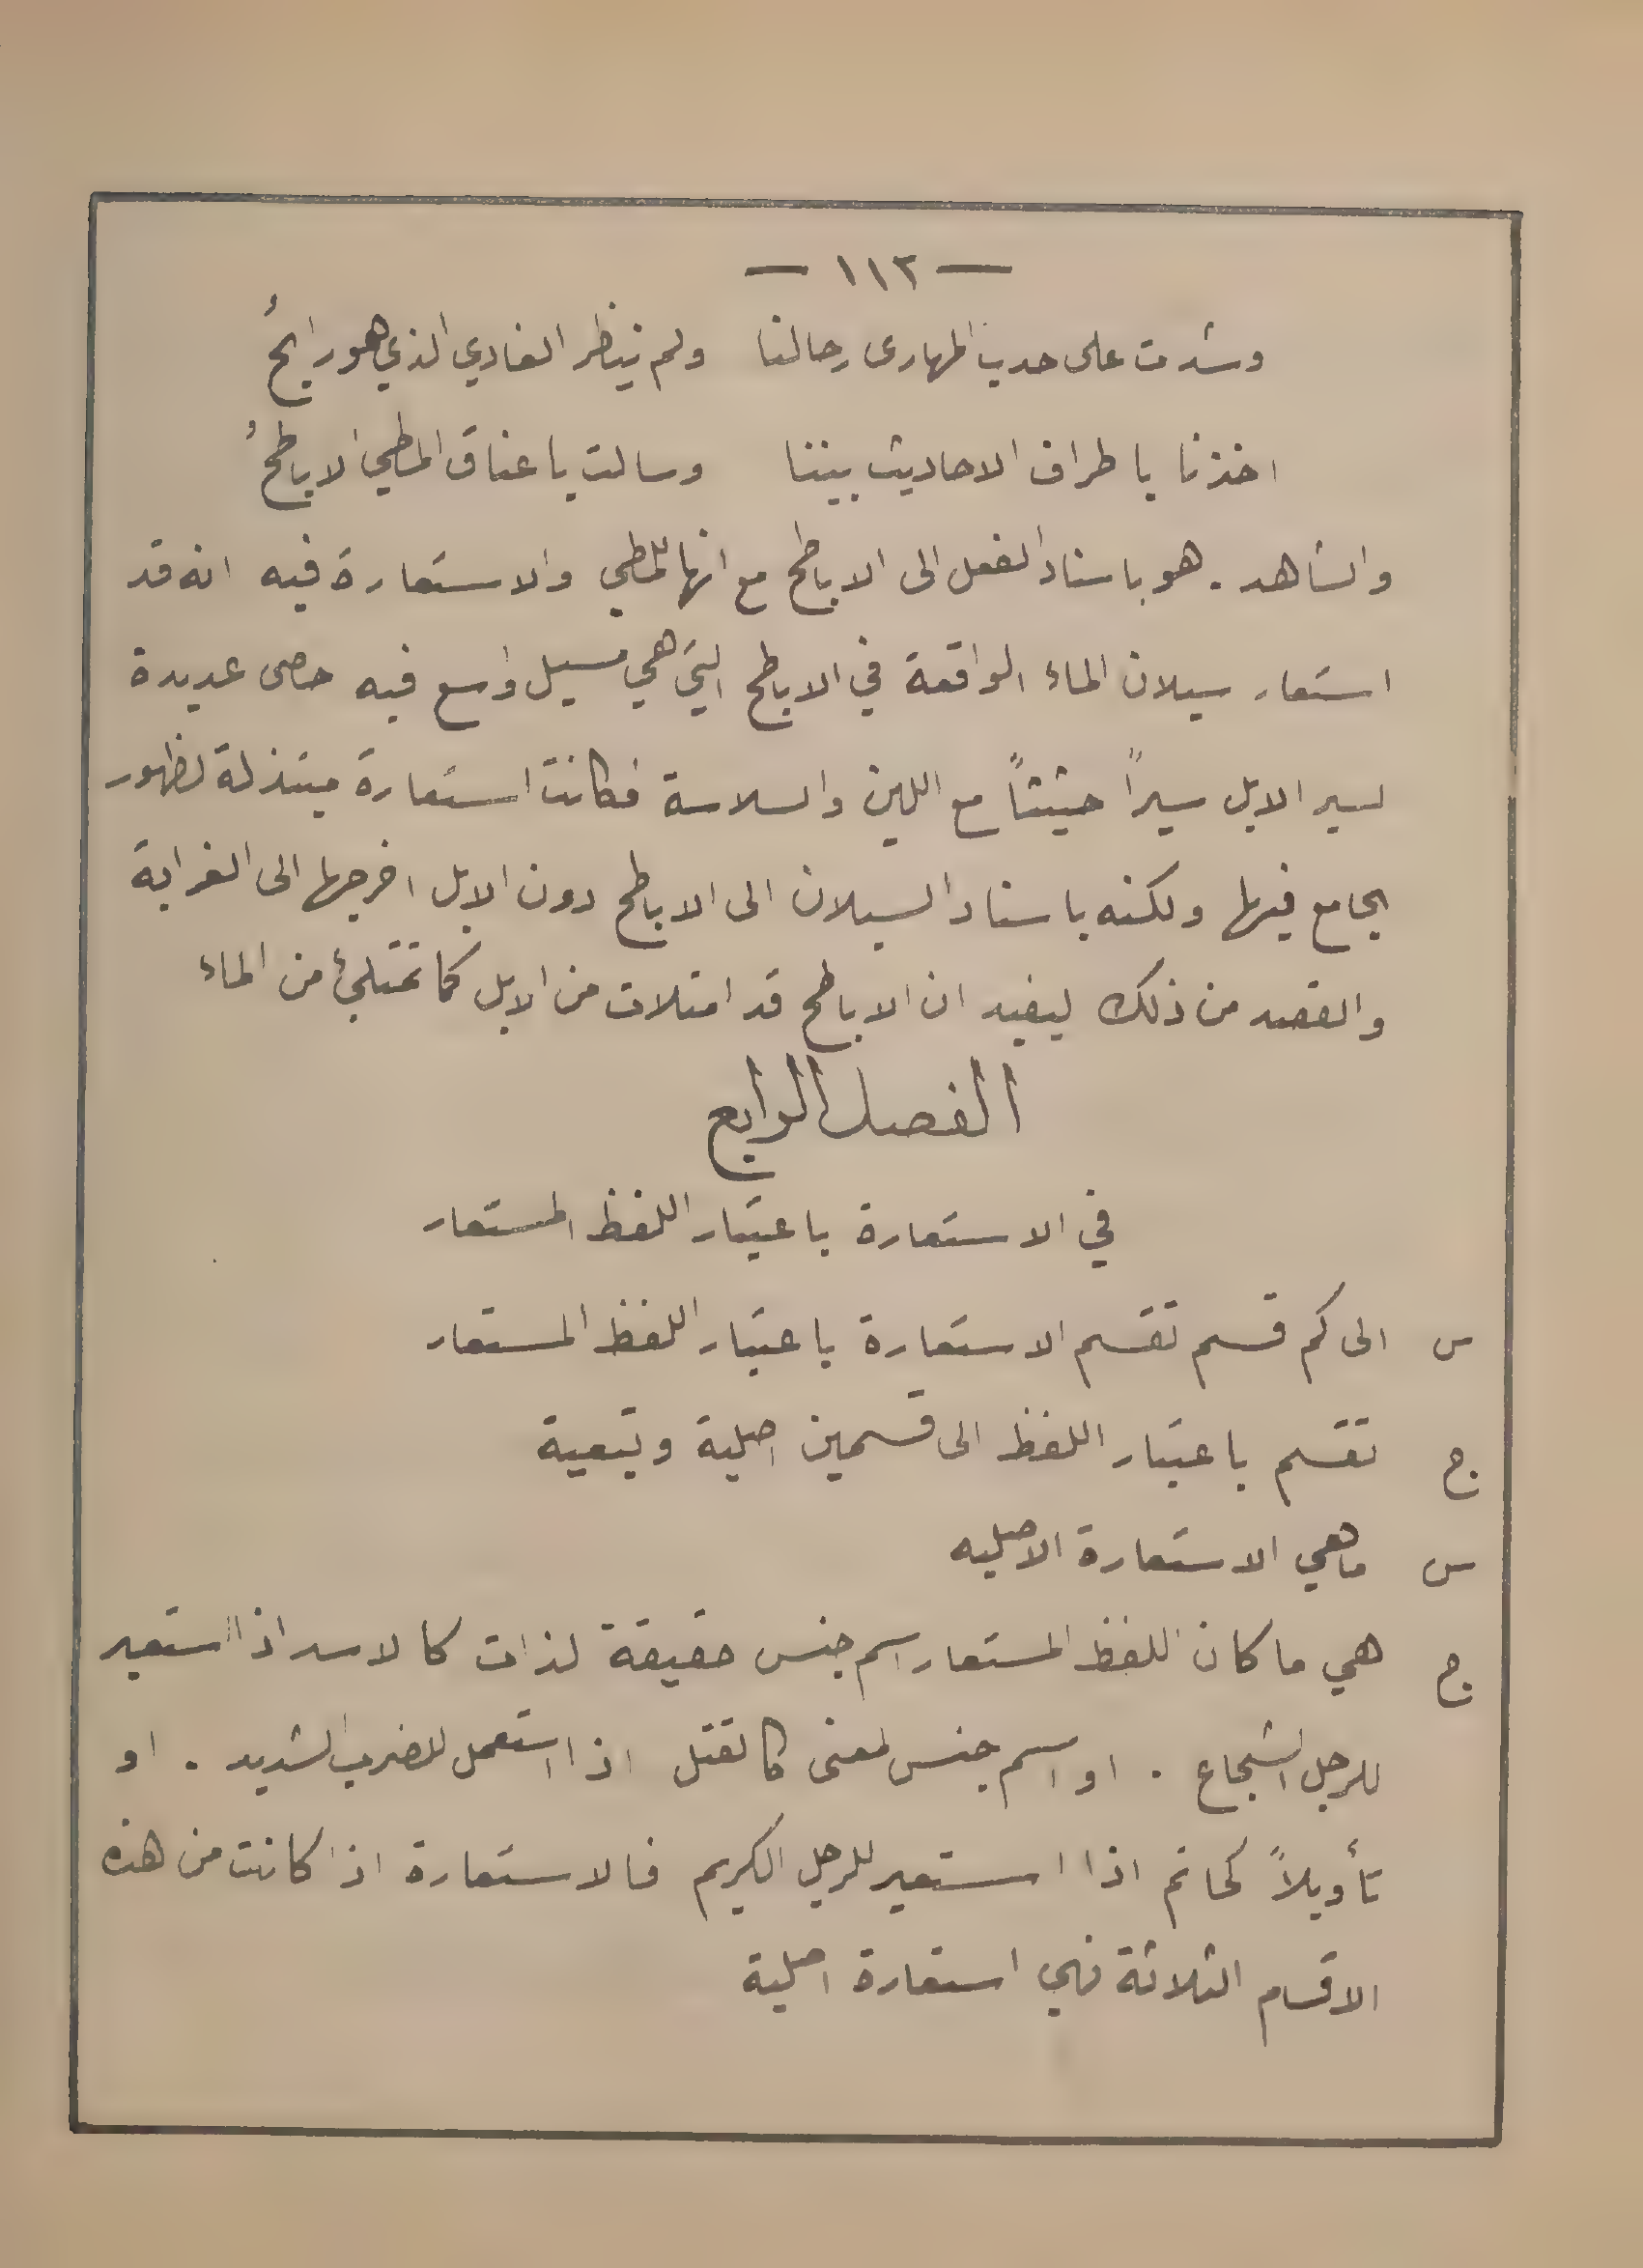 — ١١٢ —
وشدت على حدب المهارى رحالنا ولم ينظر الغادي الذي هو رايحُ
اخذنا باطراف الاحاديث بيننا وسالت باعناق المطي الاباطحُ
والشاهد . هو باسناد الفعل الى الاباطح مع انها للمطي والاستعارة فيه انه قد
استعار سيلان الماء الواقعة في الاباطح التي هي مسيل واسع فيه حصى عديدة
لسير الابل سيراً حثيثاً مع اللين والسلاسة فكانت استعارة مبتذلة لظهور
الجامع فيها ولكنه باسناد السيلان الى الاباطح دون الابل اخرجها الى الغرابة
والقصد من ذلك ليفيد ان الاباطح قد امتلات من الابل كما تمتلئ من الماء
الفصل الرابع
في الاستعارة باعتبار اللفظ المستعار
س الى كم قسم تقسم الاستعارة باعتبار اللفظ المستعار
ج تقسم باعتبار اللفظ الى قسمين اصلية وتبعية
س ما هي الاستعارة الاصليه
ج هي ما كان اللفظ المستعار اسم جنس حقيقة لذات كالاسد اذا استعير
للرجل الشجاع . او اسم جنس لمعنى كالقتل اذا استعمل للضرب الشديد . او
تأويلاً كحاتم اذا استعير للرجل الكريم فالاستعارة اذا كانت من هذه
الاقسام الثلاثة فهي استعارة اصلية